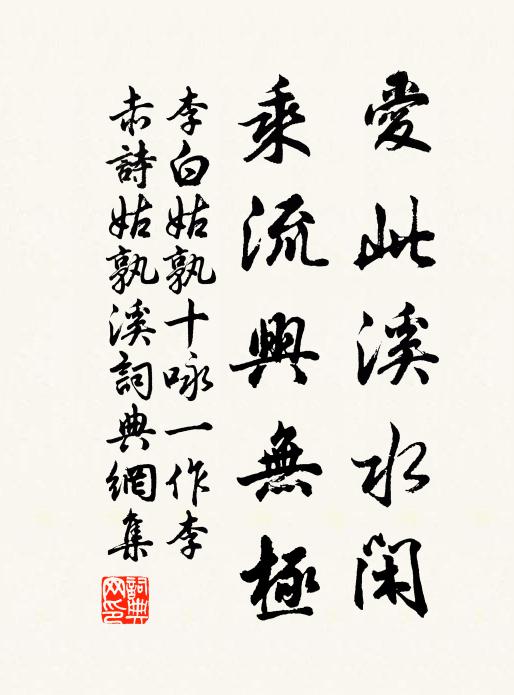 愛此溪水閑
乘流興無極
李白姑孰十咏一作李
赤詩姑孰溪詞典網集
詞典網印